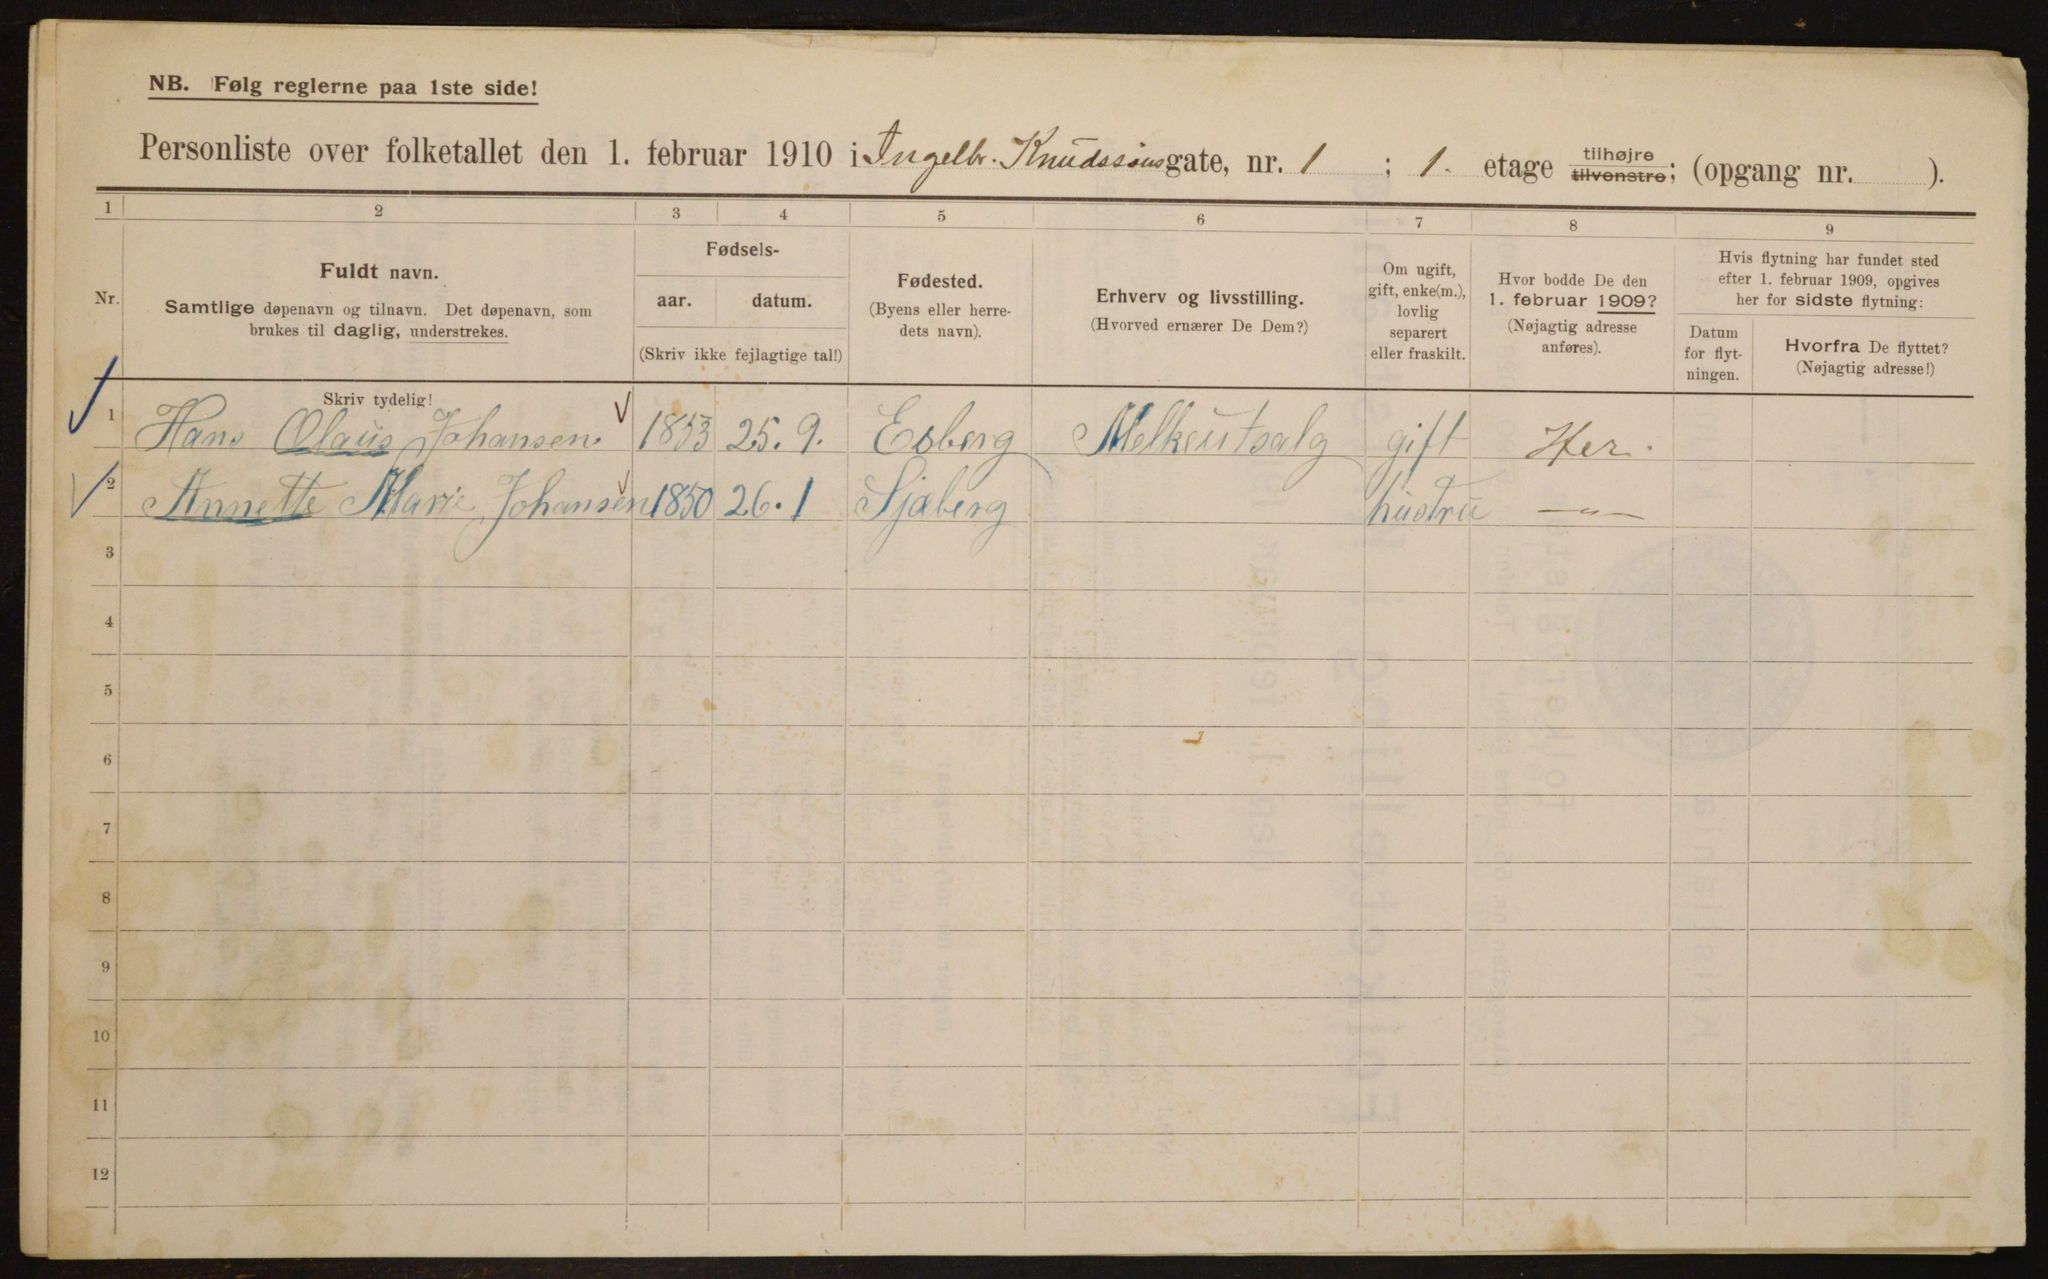 NB. Følg reglerne paa 1ste side!
Personliste over folketallet den 1. februar 1910 i Ingelbr. Knudssønsgate, nr. 1 ; 1. etage tilhøjre tilvenstre; (opgang nr. ).
1 2 3 4 5 6 7 8 9
Nr.
Fuldt navn.
Samtlige døpenavn og tilnavn. Det døpenavn, som
brukes til daglig, understrekes.
Fødsels-
aar. datum.
(Skriv ikke fejlagtige tal!)
Fødested.
(Byens eller herre-
dets navn).
Erhverv og livsstilling.
(Hvorved ernærer De Dem?)
Om ugift,
gift, enke(m.),
lovlig
separert
eller fraskilt.
Hvor bodde De den
1. februar 1909?
(Nøjagtig adresse
anføres).
Hvis flytning har fundet sted
efter 1. februar 1909, opgives
her for sidste flytning:
Datum
for flyt-
ningen.
Hvorfra De flyttet?
(Nøjagtig adresse!)
Skriv tydelig!
1 Hans Olaus Johansen 1853 25.9. Esberg Melkeutsalg gift Her.
2 Annette Marie Johansen 1850 26.1 Sjæberg hustru —"—
3
4
5
6
7
8
9
10
11
12